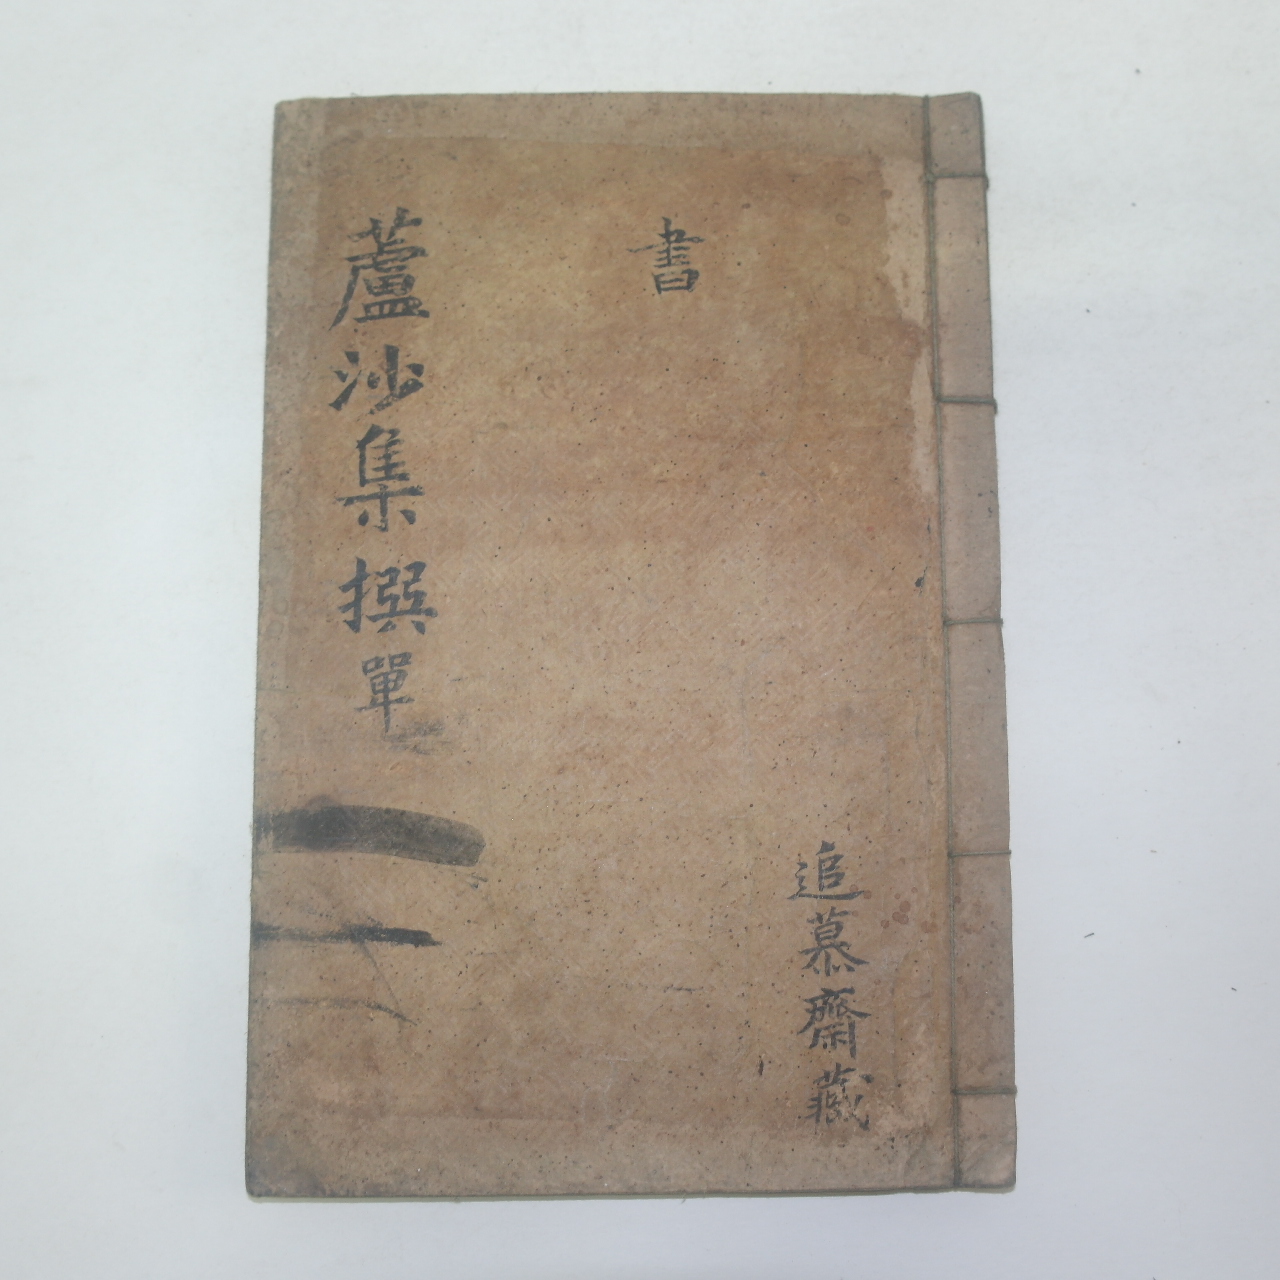 書
追慕齋藏
蘆沙集撰單